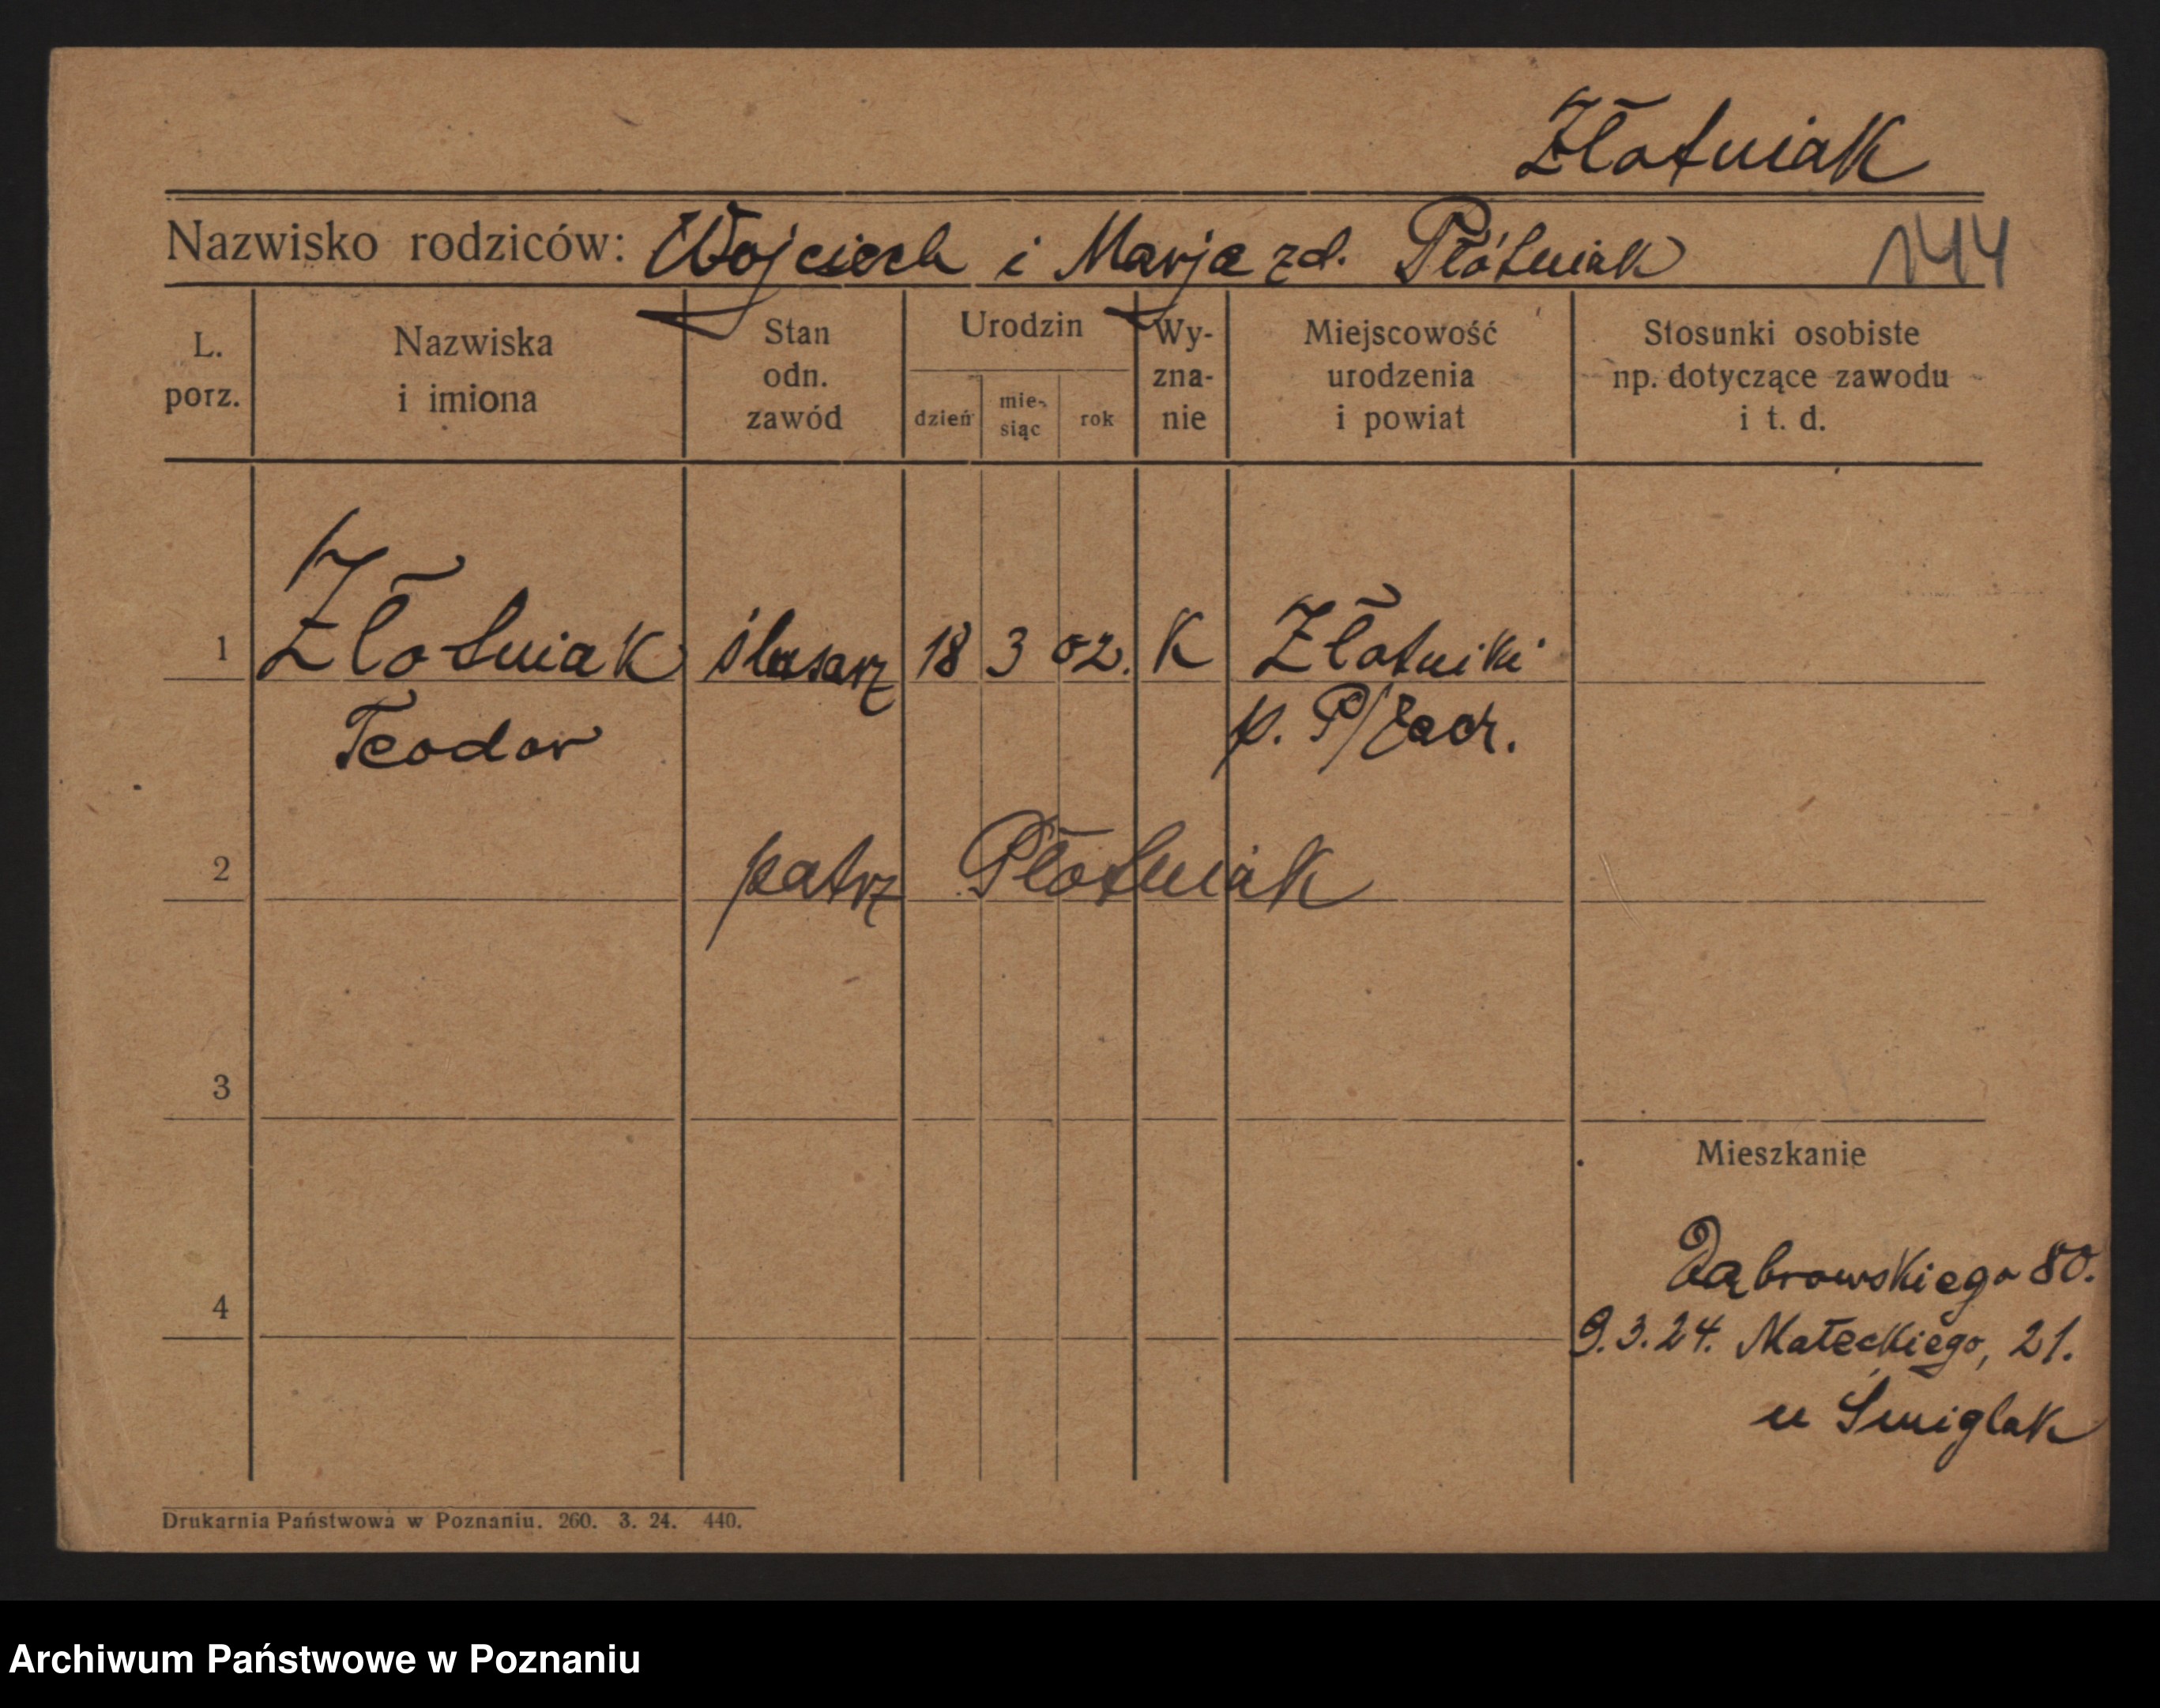 Złotniak
Nazwisko rodziców: Wojciech i Marja zd. Płótniak 144
L. porz.
Nazwiska i imiona
Stan odn. zawód
Urodzin
dzień
mie-siąc
rok
Wy-zna-nie
Miejscowość urodzenia i powiat
Stosunki osobiste np. dotyczące zawodu i t. d.
1 Złotniak ślusarz 18 3 02. K Złotniki
Teodor p. P/Zach.
2 patrz Płótniak
3
Mieszkanie
Dąbrowskiego 80.
4 9.3.24. Małeckiego, 21.
u Śmiglak
Drukarnia Państwowa w Poznaniu. 260. 3. 24. 440.
Archiwum Państwowe w Poznaniu